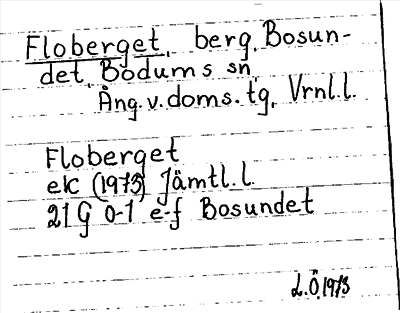 Floberget, berg, Bosun-
det, Bodums sn,
Ång. v. doms. tg, Vrnl. l.
Floberget
ek (1973) Jämtl. l.
21 G 0-1 e-f Bosundet
L.Ö. 1973